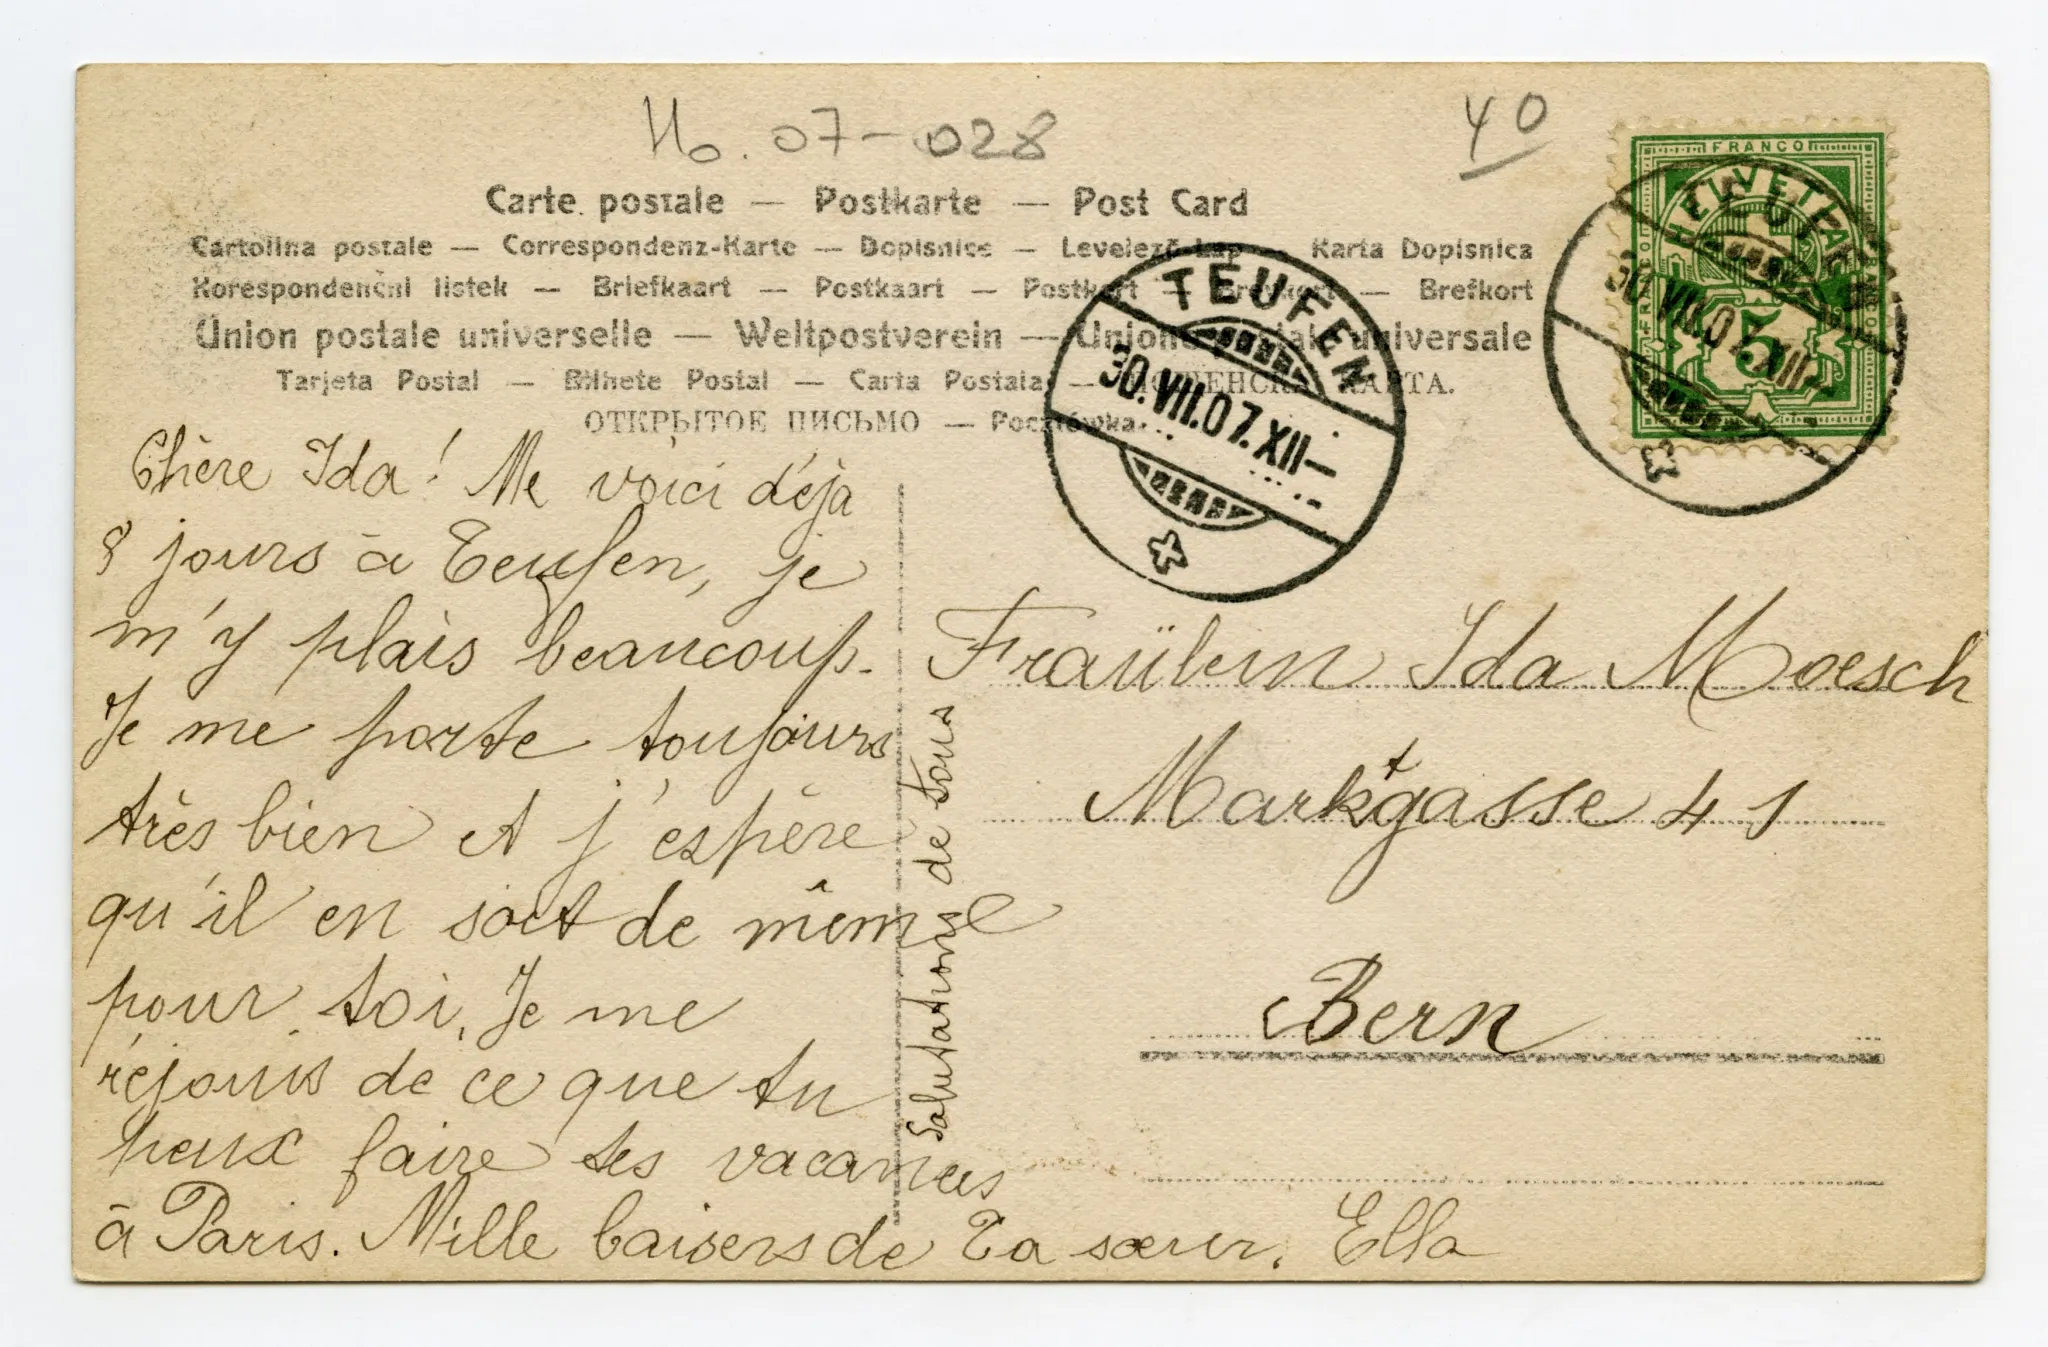 No. 07-028
40
Carte postale — Postkarte — Post Card
Cartolina postale — Correspondenz-Karte — Dopisnice — Levelező-Lap Karta Dopisnica
Korespondenčni listek — Briefkaart — Postkaart — Postkort — Brevkort — Brefkort
Union postale universelle — Weltpostverein — Unione postale universale
Tarjeta Postal — Bilhete Postal — Carta Postala — КАРТА.
ОТКРЫТОЕ ПИСЬМО — Pocztówka
FRANCO
HELVETIA
FRANCO
FRANCO
5
TEUFEN
30.VII.07.XII—
TEUFEN
30.VII.07.XII—
Chère Ida! Me voici déjà
8 jours à Teufen, je
m'y plais beaucoup.
Je me porte toujours
très bien et j'espère
qu'il en soit de même
pour toi. Je me
réjouis de ce que tu
peux faire tes vacances
à Paris. Mille baisers de Ta sœur. Ella
Salutations de tous
Fraülein Ida Moesch
Marktgasse 41
Bern